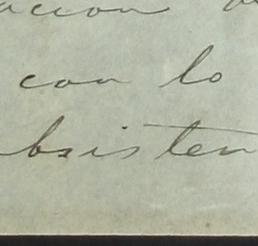 acion
con lo
bsisten